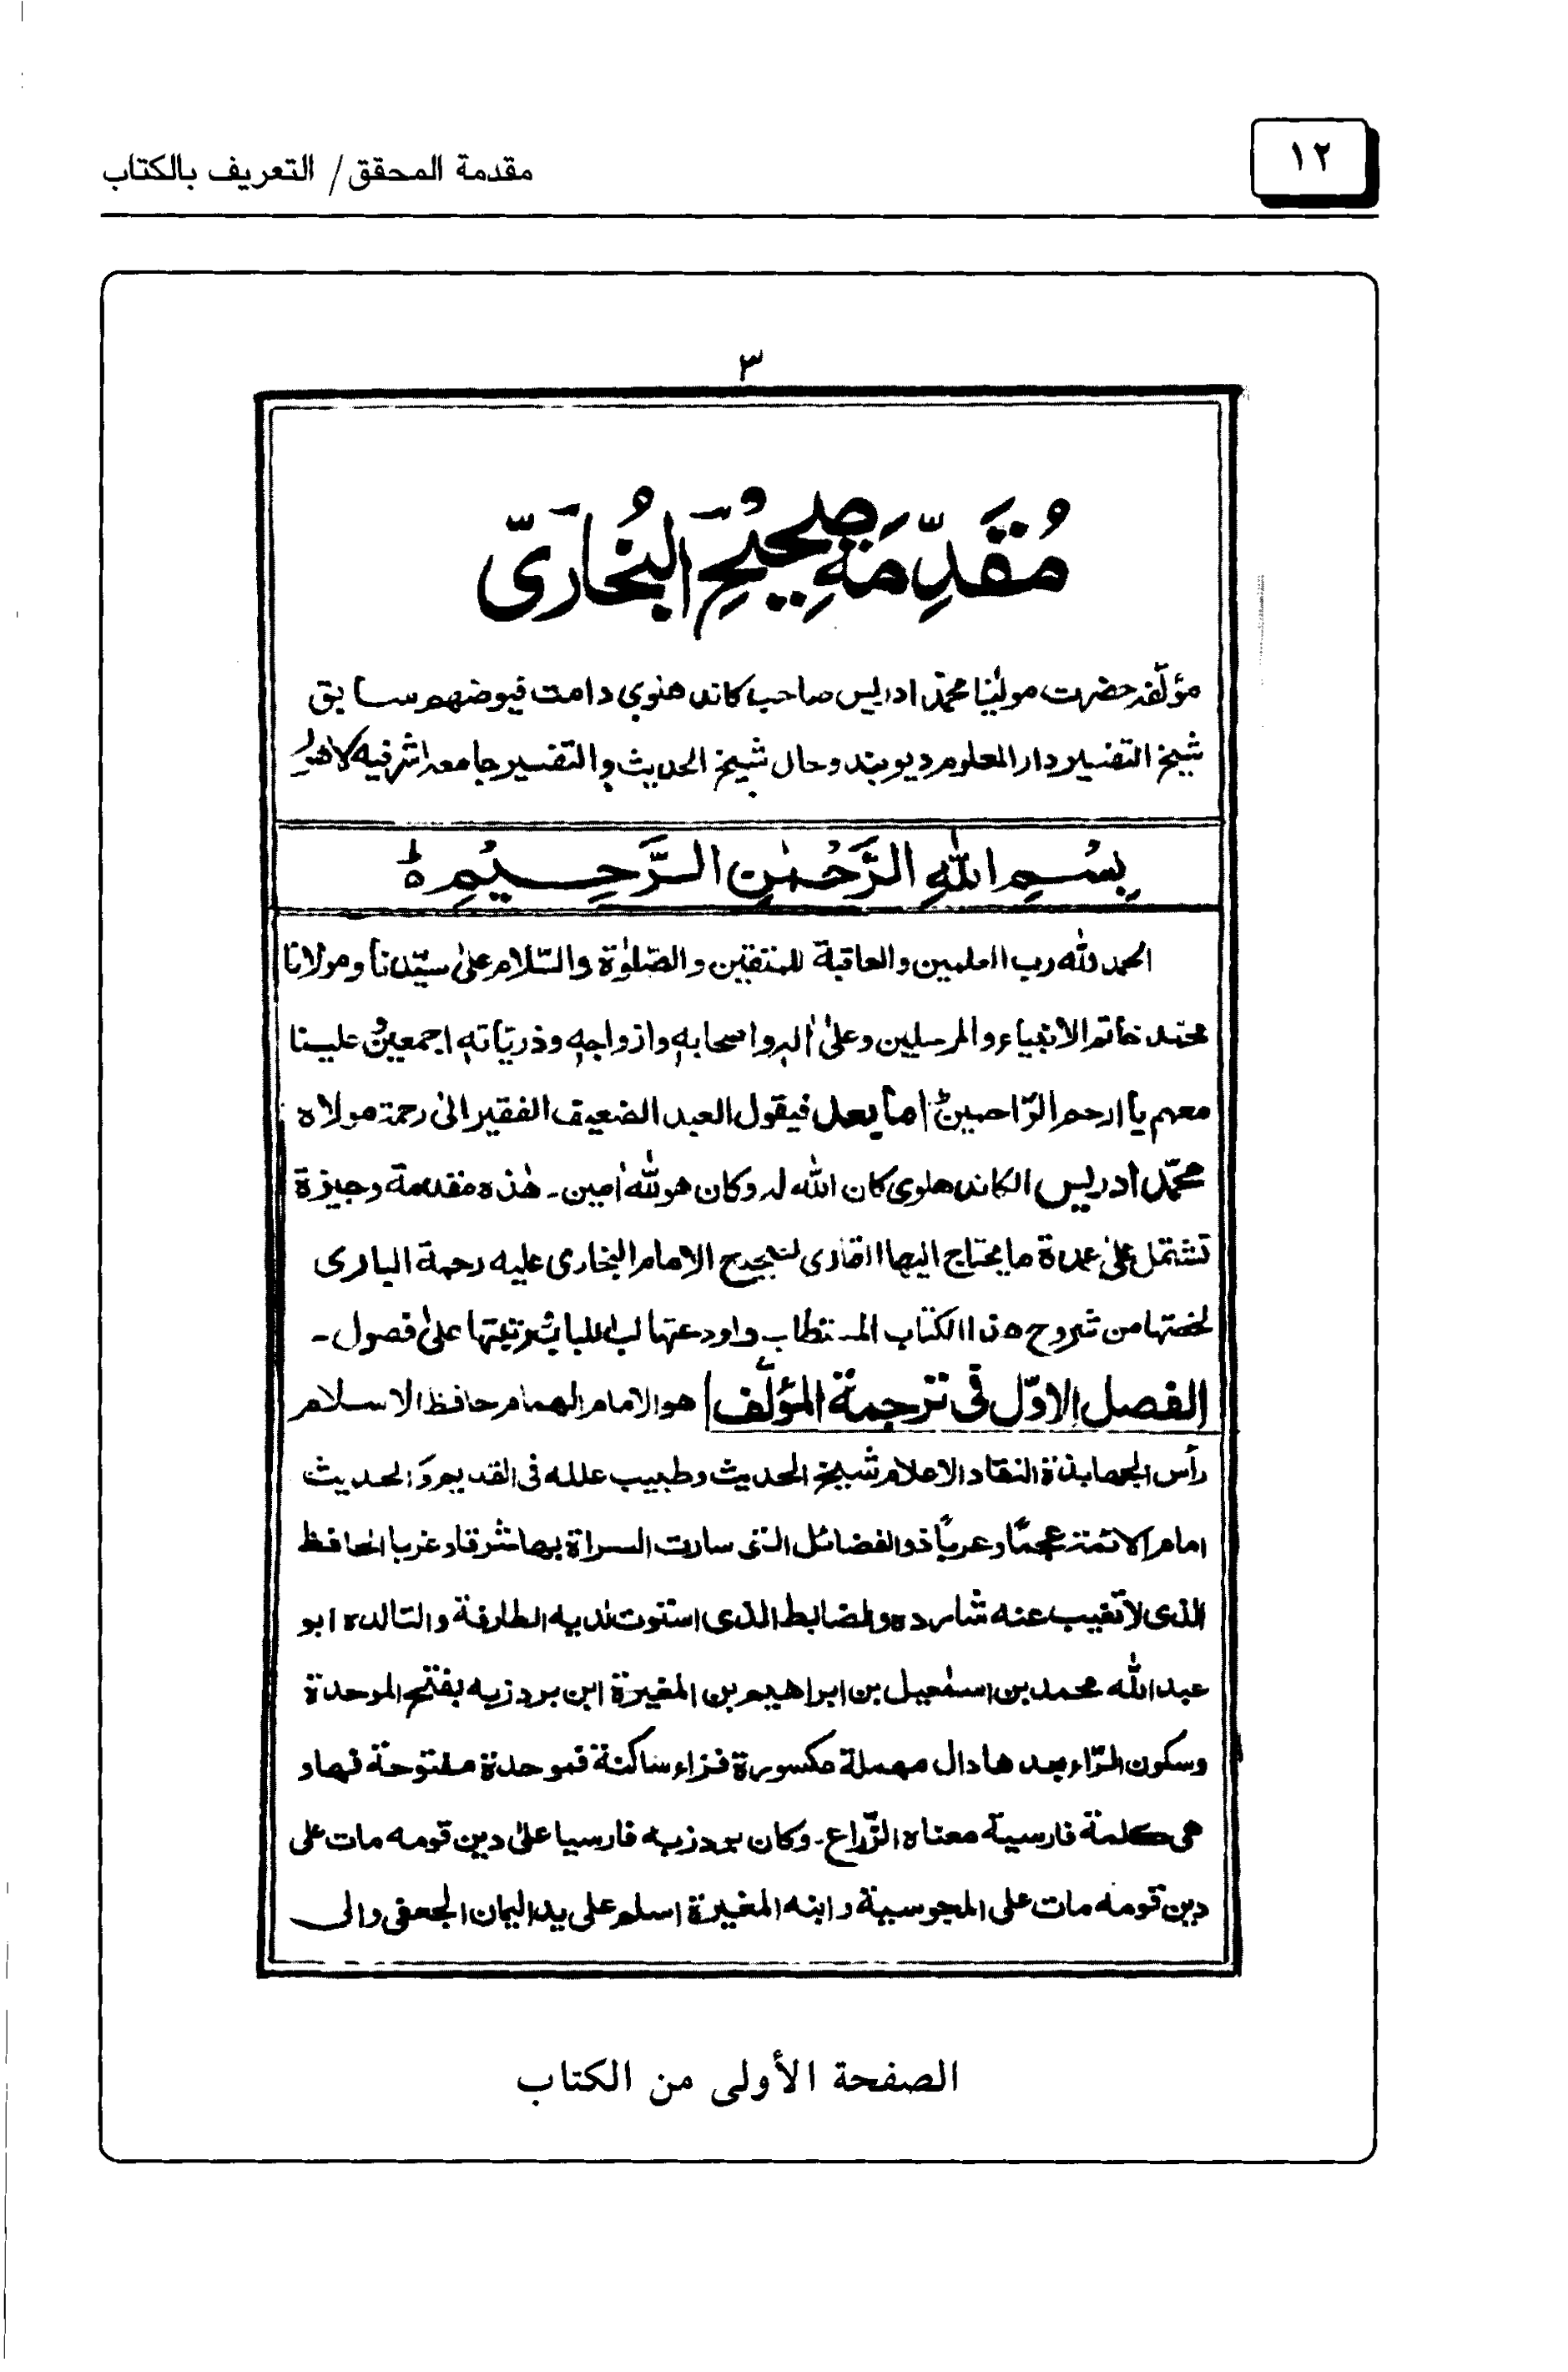 ١٢
مقدمة المحقق / التعريف بالكتاب
٣
مُقَدِّمَةِ صَحِيْحُ البُخَارَىّ
مؤلفہ حضرت مولٰینا محمّد ادریس صاحب کاندهلوی دامت فیوضهم سابق
شیخ التفسیر دارالعلوم دیوبند وحال شیخ الحدیث والتفسیر جامعہ اشرفیه لاهور
بِسْمِ اللّٰهِ الرَّحْمٰنِ الرَّحِيْمِ ط
الحمد للّٰه رب العلمين والعاقبة للمتقين والصّلوٰة والسّلام علىٰ سيّدنا ومولانا
محمّد خاتم الانبياء والمرسلين وعلىٰ اٰلہ واصحابہٖ وازواجہٖ وذريّاتہٖ اجمعين وعلينا
معهم يا ارحم الرّاحمين ط اما بعد فيقول العبد الضعيف الفقير الىٰ رحمة مولاه
محمّد ادريس الكاندهلوى كان اللّٰه لہ وكان هو للّٰه اٰمين ـ هٰذه مقدمة وجيزة
تشتمل علىٰ عدة ما يحتاج اليها القارى لصحيح الامام البخارى عليه رحمة البارى
لخصتها من شروح هذا الكتاب المستطاب واودعتها لب اللباب ثم رتبتها علىٰ فصول ـ
الفصل الاوّل فى ترجمة المؤلّف هو الامام الهمام حافظ الاسلام
رأس الجهابذة النقاد الاعلام شيخ الحديث وطبيب علله فى القديم والحديث
امام الائمة عجمًا وعربًا ذو الفضائل التى سارت السراة بها شرقا وغربا الحافظ
الذى لا تغيب عنه شارده والضابط الذى استوت لديه الطارفة والتالده ابو
عبد اللّٰه محمد بن اسمٰعيل بن ابراهيم بن المغيرة ابن بردزبه بفتح الموحدة
وسكون الرّاء بعدها دال مهملة مكسورة فزاء ساكنة فموحدة مفتوحة فهاء و
هى كلمة فارسية معناه الزّراع ـ وكان بردزبه فارسيا علىٰ دين قومه مات على
دين قومه مات على المجوسية وابنه المغيرة اسلم على يد اليمان الجعفى والى
الصفحة الأولى من الكتاب